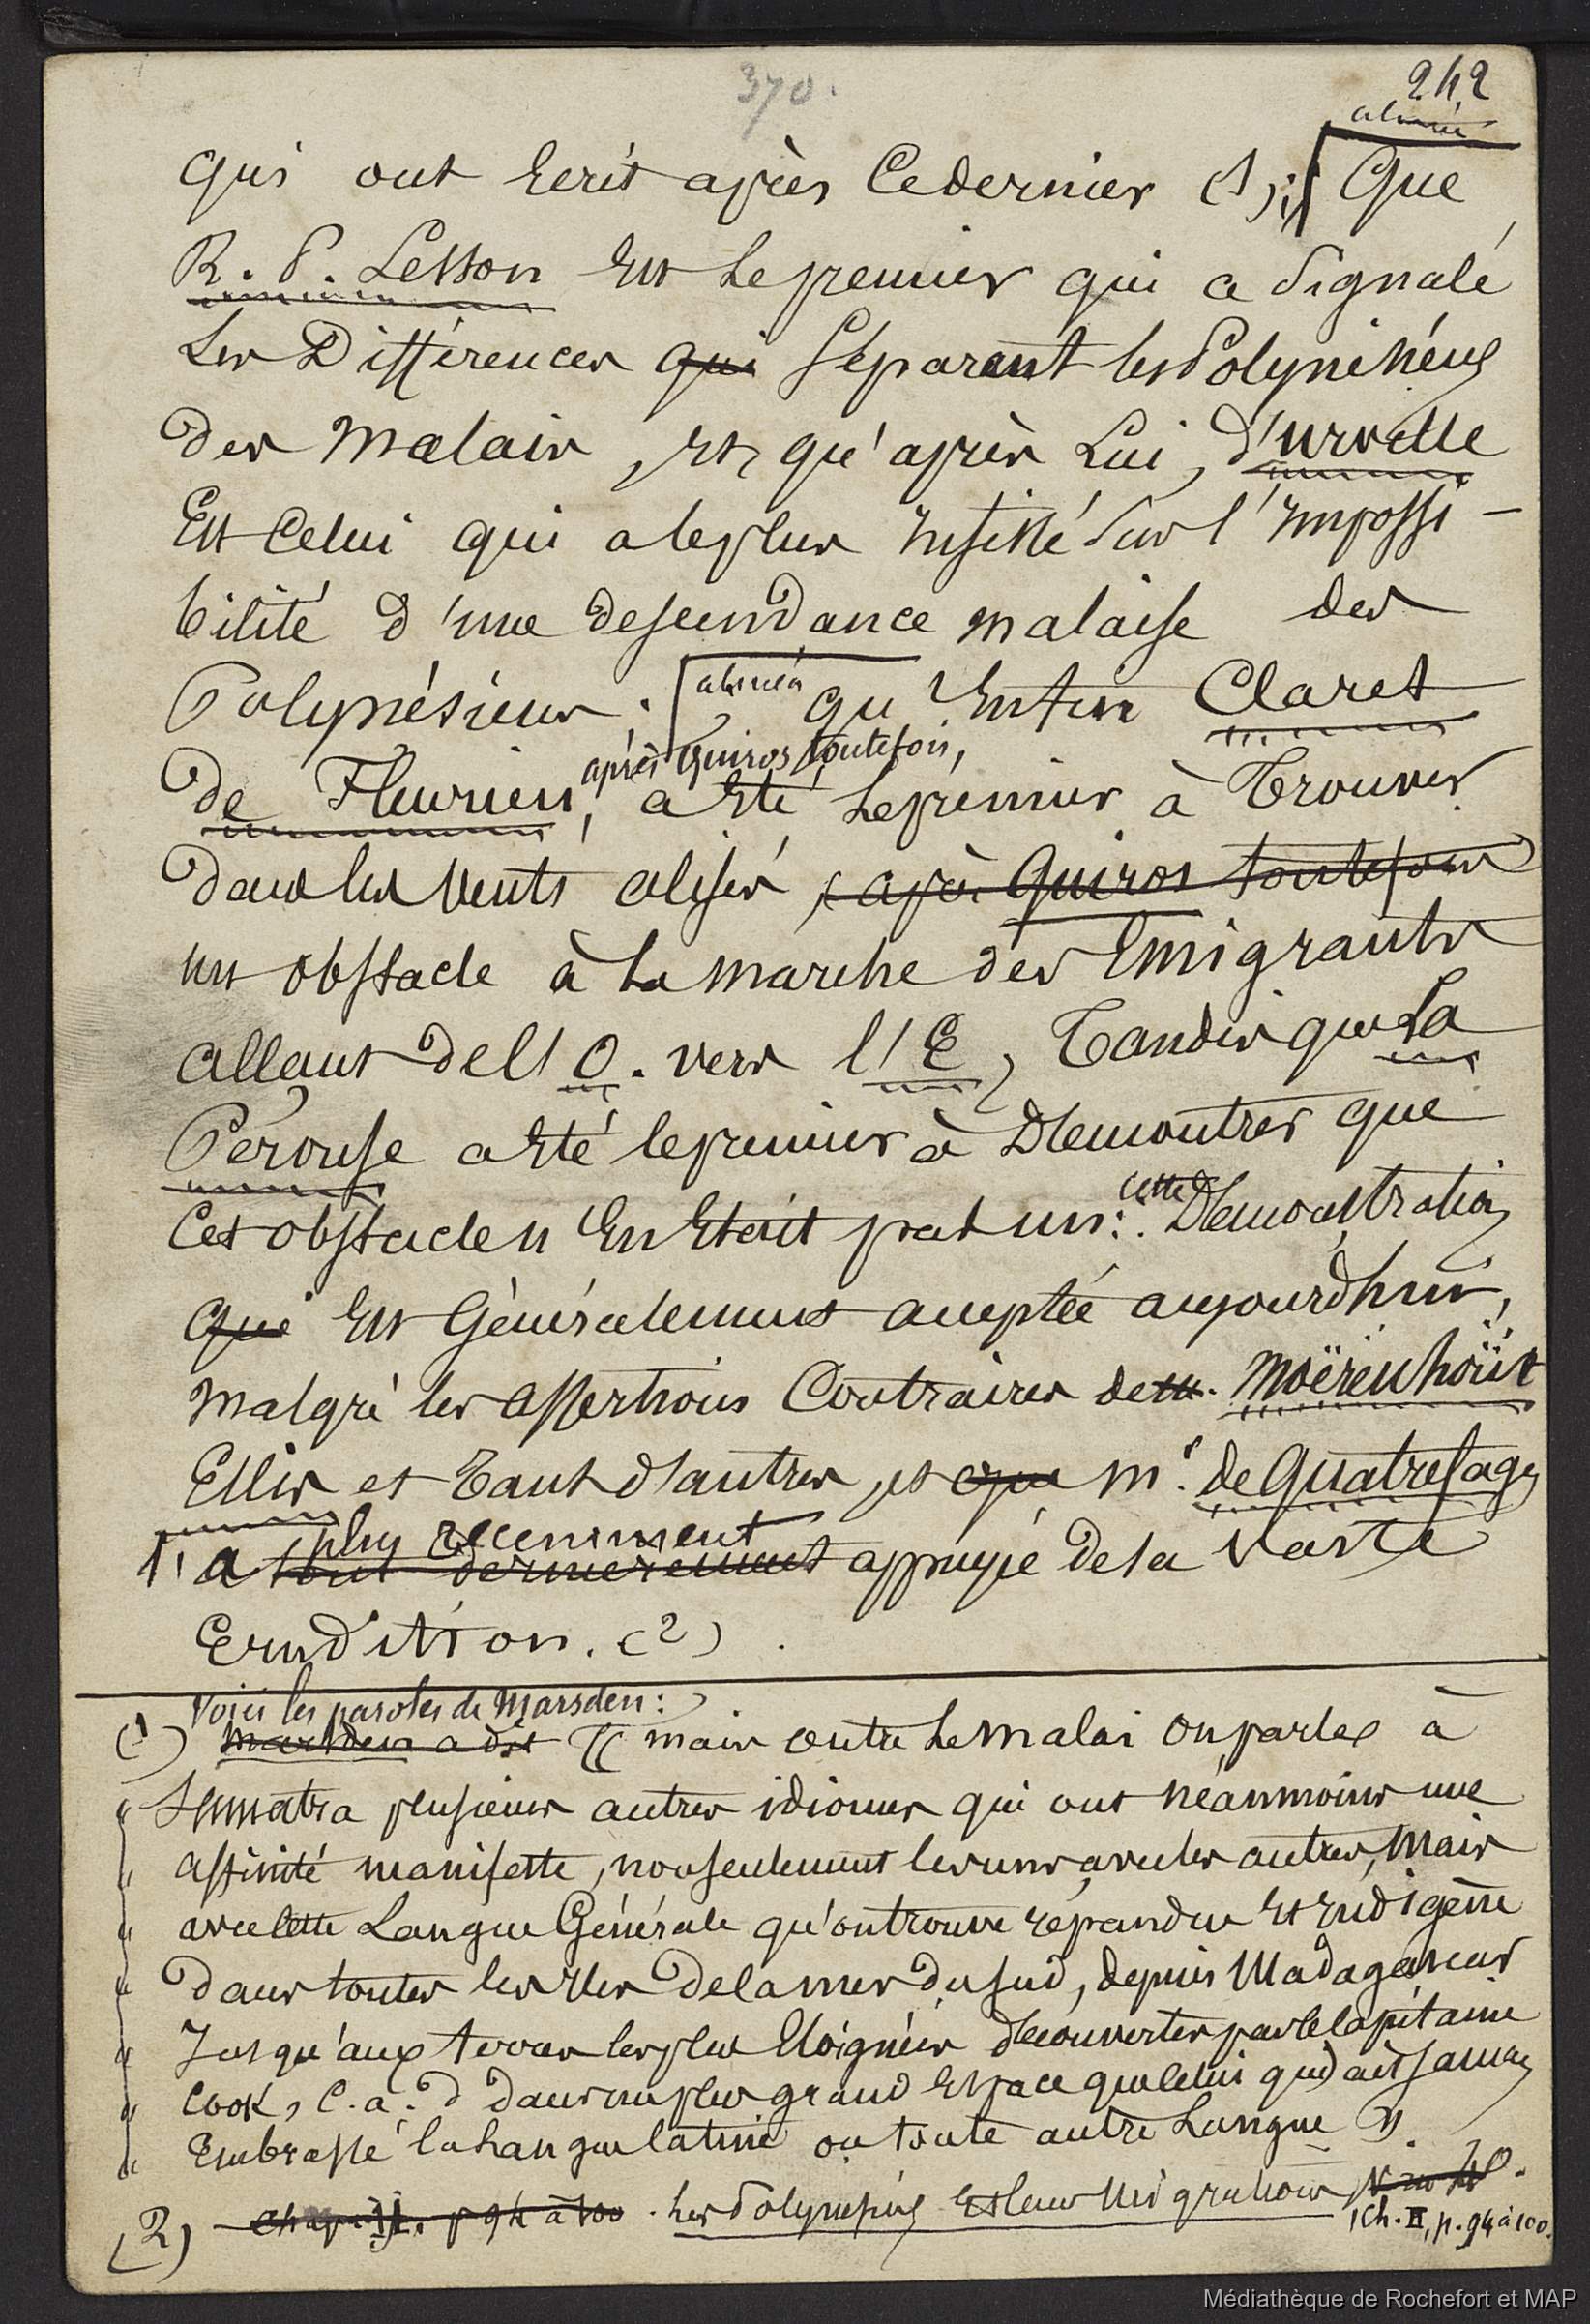 370.
242
alinéa
qui ont écrit après ce dernier (1); Que
R. P. Lesson est le premier qui a signalé
les différences qui séparent les Polynésiens
des Malais, et, qu'après lui, d'Urville
est celui qui a le plus insisté sur l'impossi-
bilité d'une descendance malaise des
Polynésiens; alinéa qu'enfin Claret
après Quiros toutefois,
de Fleurieu, a été le premier à trouver
dans les vents alisés, (après Quiros toutefois)
un obstacle à la marche des émigrants
allant de l'O. vers l'E, tandis que La
Pérouse a été le premier à démontrer que
cet obstacle n'en était pas un: cette démonstration
qui est généralement acceptée aujourd'hui,
malgré les assertions contraires de M. Moërenhoüt
Ellis et tant d'autres, et que Mr. de Quatrefages
plus récemment
l'a tout dernièrement appuyé de sa vaste
érudition. (2)
Voici les paroles de Marsden:
(1) Marsden a dit « mais outre le malai on parle à
« Sumatra plusieurs autres idiomes qui ont néanmoins une
« affinité manifeste, non seulement les uns avec les autres, mais
« avec cette langue générale qu'on trouve répandue et indigène
« dans toutes les îles de la mer du sud, depuis Madagascar
« jusqu'aux terres les plus éloignées découvertes par le Capitaine
« Cook, c. a. d dans un plus grand espace que celui qu'ait jamais
« embrassé la langue latine ou toute autre langue ».
(2) Chap. II. p 94 à 100. Les Polynésiens et leurs migrations,
Ch. II, p. 94 à 100.
Médiathèque de Rochefort et MAP